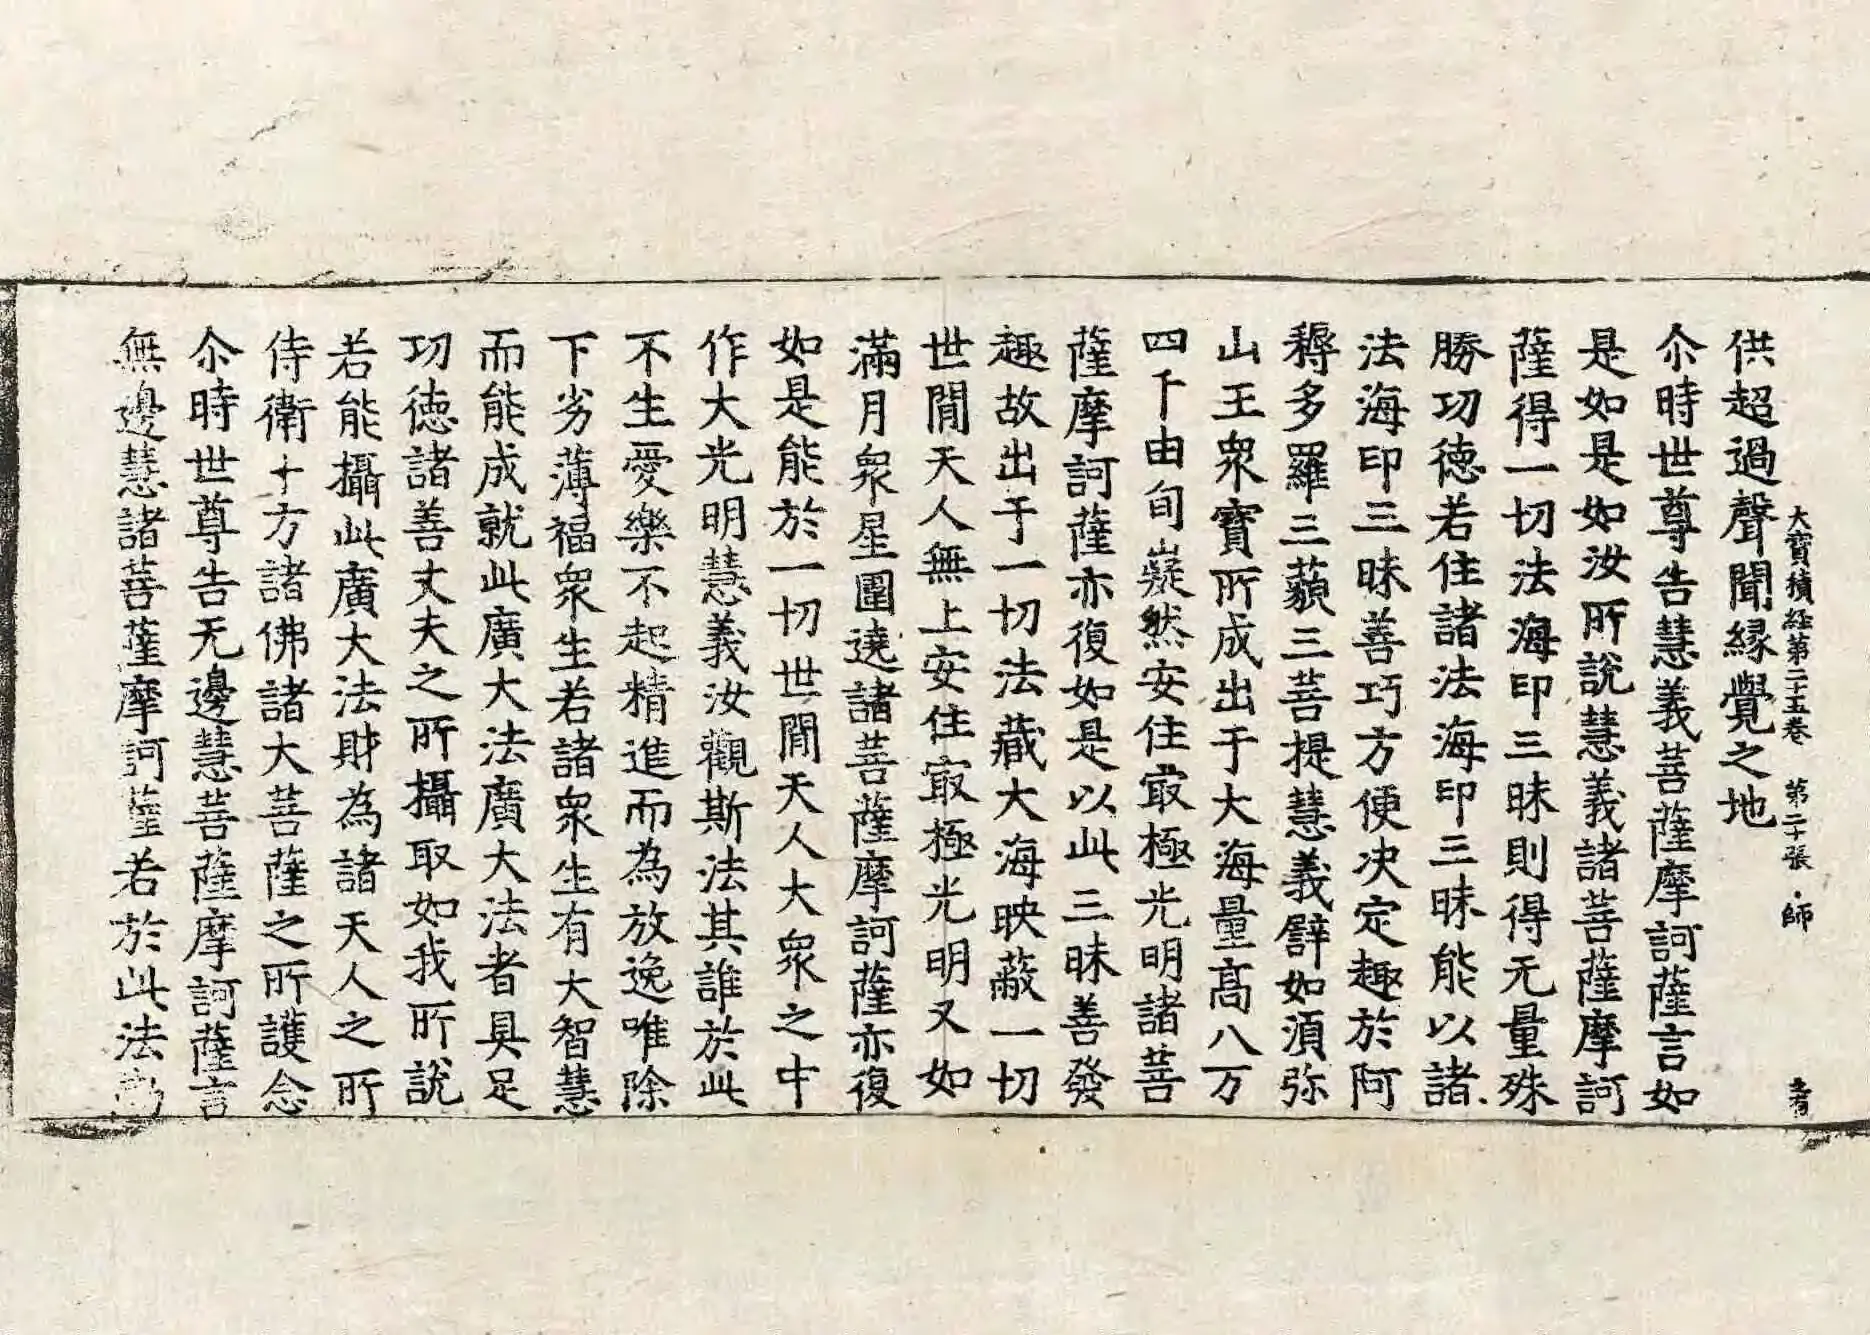 大寶積経第二十五卷 第二十張 師
供超過聲聞縁覺之地
尒時世尊告慧義菩薩摩訶薩言如
是如是如汝所說慧義諸菩薩摩訶
薩得一切法海印三昧則得无量殊
勝功德若住諸法海印三昧能以諸
法海印三昧善巧方便决定趣於阿
耨多羅三藐三菩提慧義譬如須弥
山王衆寶所成出于大海量髙八万
四千由旬嶷然安住㝡極光明諸菩
薩摩訶薩亦復如是以此三昧善發
趣故出于一切法藏大海映蔽一切
世閒天人無上安住㝡極光明又如
滿月衆星圍遶諸菩薩摩訶薩亦復
如是能於一切世閒天人大衆之中
作大光明慧義汝觀斯法其誰於此
不生愛樂不起精進而為放逸唯除
下劣薄福衆生若諸衆生有大智慧
而能成就此廣大法廣大法者具足
功徳諸善丈夫之所攝取如我所說
若能攝此廣大法財為諸天人之所
侍衛十方諸佛諸大菩薩之所護念
尒時世尊告无邊慧菩薩摩訶薩言
無邊慧諸菩薩摩訶薩若於此法